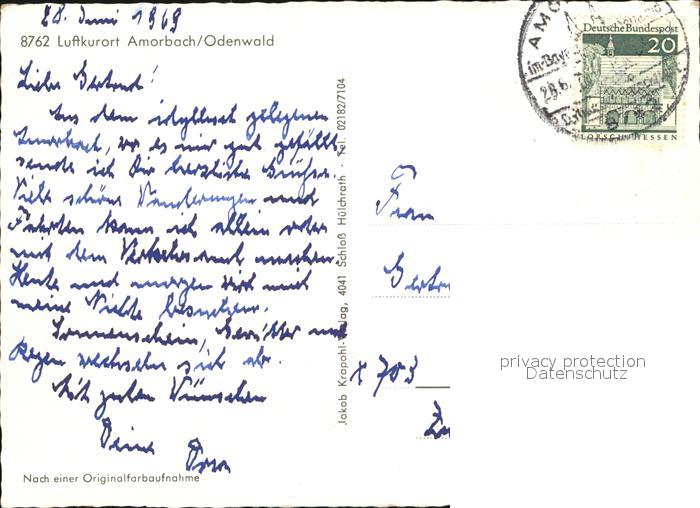 28. Juni 1969
8762 Luftkurort Amorbach/Odenwald
Liebe Gertrud!
Aus dem idyllisch gelegenen
Amorbach, wo es mir gut gefällt
sende ich Dir herzliche Grüße.
Viele schöne Wanderungen und
Fahrten kann ich allein oder
mit dem Verkehrsamt machen.
Heute und morgen wird mich
meine Nichte besuchen.
Sonnenschein, Gewitter und
Regen wechseln sich ab.
Mit guten Wünschen
Deine
Nach einer Originalfarbaufnahme
Jakob Krapohl-Verlag, 4041 Schloß Hülchrath · Tel. 02182/7104
AMO
28.6.
Deutsche Bundespost
20
LORSCH/HESSEN
Frau
Gertru
x 703
privacy protection
Datenschutz